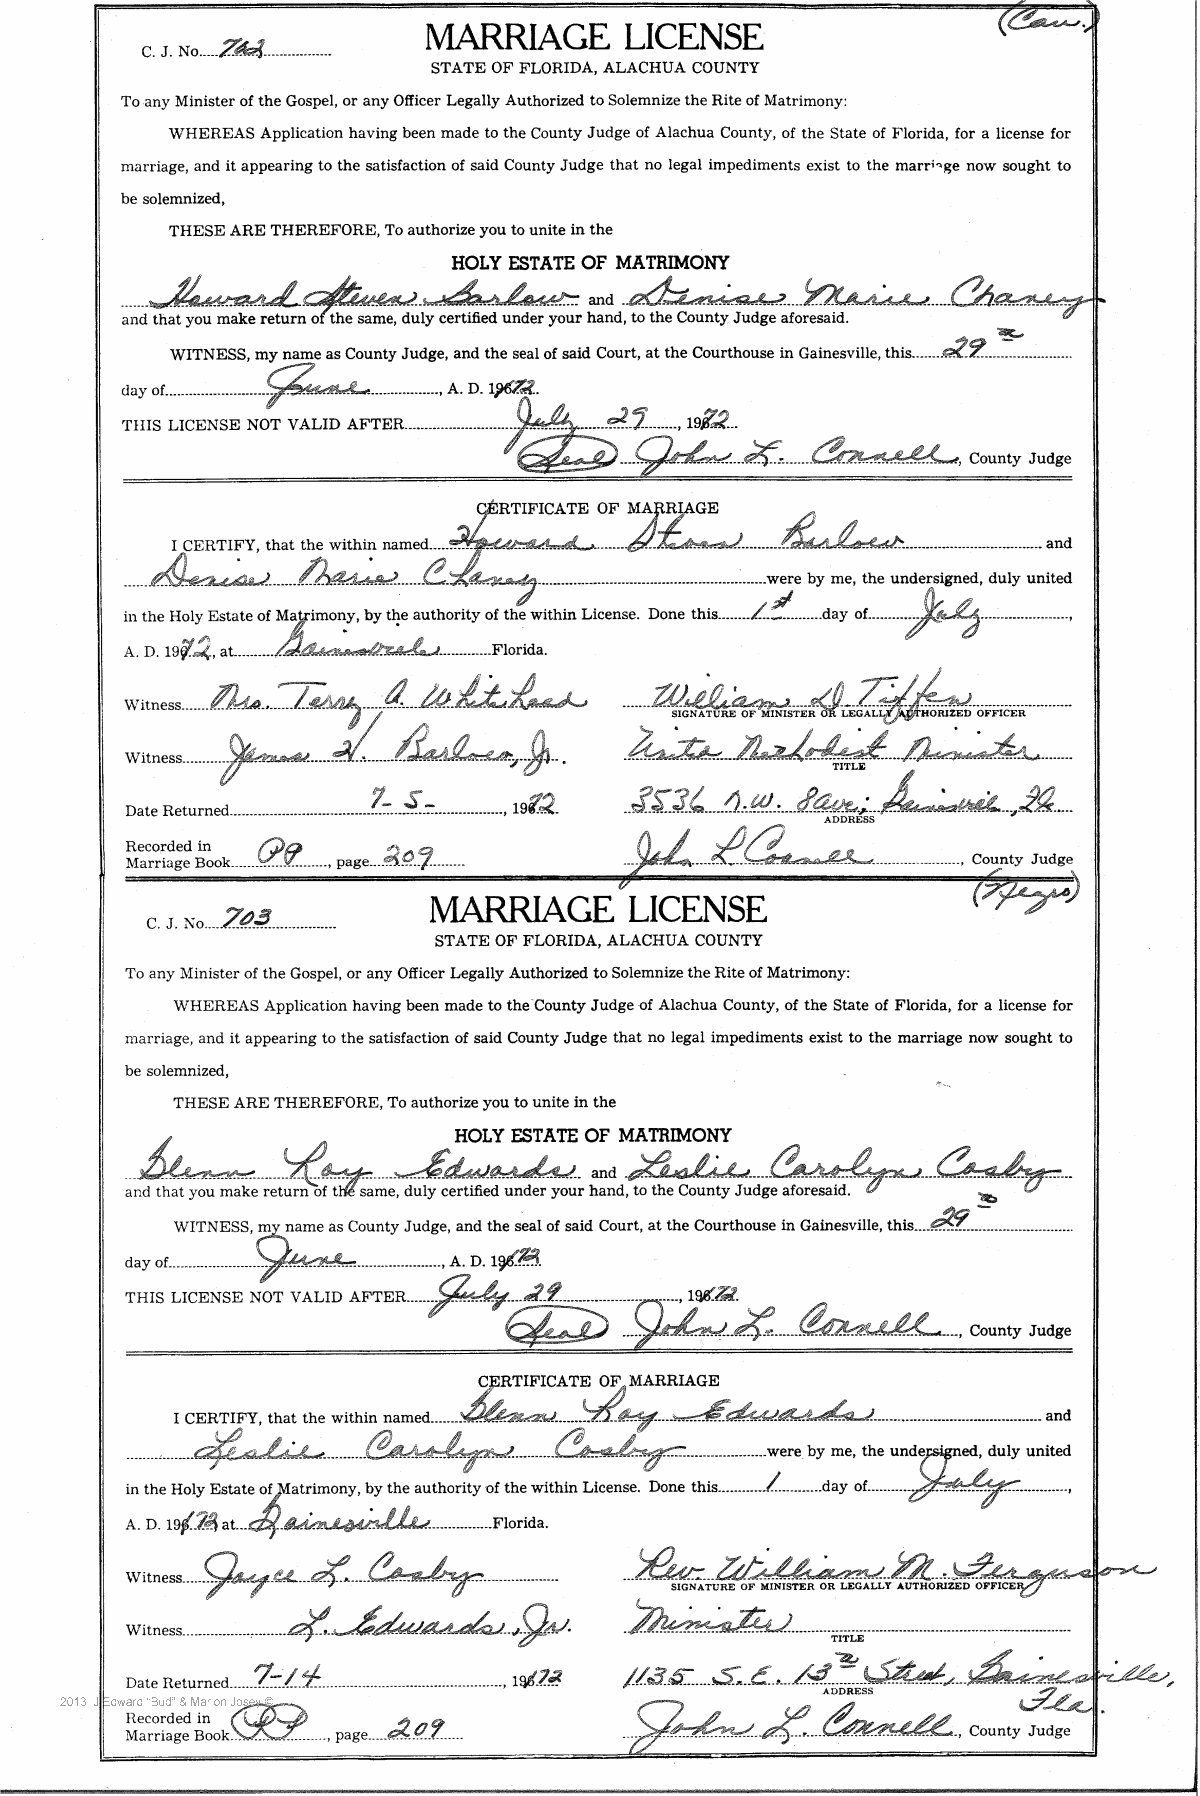 (Cau.)
C. J. No. 702
MARRIAGE LICENSE
STATE OF FLORIDA, ALACHUA COUNTY
To any Minister of the Gospel, or any Officer Legally Authorized to Solemnize the Rite of Matrimony:
WHEREAS Application having been made to the County Judge of Alachua County, of the State of Florida, for a license for
marriage, and it appearing to the satisfaction of said County Judge that no legal impediments exist to the marriage now sought to
be solemnized,
THESE ARE THEREFORE, To authorize you to unite in the
HOLY ESTATE OF MATRIMONY
Howard Steven Barlow and Denise Marie Chaney
and that you make return of the same, duly certified under your hand, to the County Judge aforesaid.
WITNESS, my name as County Judge, and the seal of said Court, at the Courthouse in Gainesville, this 29th
day of June, A. D. 1972.
THIS LICENSE NOT VALID AFTER July 29, 1972
(Seal) John L. Connell, County Judge
CERTIFICATE OF MARRIAGE
I CERTIFY, that the within named Howard Steven Barlow and
Denise Marie Chaney were by me, the undersigned, duly united
in the Holy Estate of Matrimony, by the authority of the within License. Done this 1st day of July,
A. D. 1972, at Gainesville Florida.
Witness Mrs. Terry A. Whitehead William D. Tiffen
SIGNATURE OF MINISTER OR LEGALLY AUTHORIZED OFFICER
Witness James H. Barlow, Jr. United Methodist Minister
TITLE
Date Returned 7-5-, 1972 3536 N.W. 8 Ave; Gainesville, Fla
ADDRESS
Recorded in
Marriage Book PP, page 209 John L. Connell, County Judge
(Negro)
C. J. No. 703
MARRIAGE LICENSE
STATE OF FLORIDA, ALACHUA COUNTY
To any Minister of the Gospel, or any Officer Legally Authorized to Solemnize the Rite of Matrimony:
WHEREAS Application having been made to the County Judge of Alachua County, of the State of Florida, for a license for
marriage, and it appearing to the satisfaction of said County Judge that no legal impediments exist to the marriage now sought to
be solemnized,
THESE ARE THEREFORE, To authorize you to unite in the
HOLY ESTATE OF MATRIMONY
Glenn Roy Edwards and Leslie Carolyn Cosby
and that you make return of the same, duly certified under your hand, to the County Judge aforesaid.
WITNESS, my name as County Judge, and the seal of said Court, at the Courthouse in Gainesville, this 29th
day of June, A. D. 1972.
THIS LICENSE NOT VALID AFTER July 29, 1972.
(Seal) John L. Connell, County Judge
CERTIFICATE OF MARRIAGE
I CERTIFY, that the within named Glenn Roy Edwards and
Leslie Carolyn Cosby were by me, the undersigned, duly united
in the Holy Estate of Matrimony, by the authority of the within License. Done this 1 day of July,
A. D. 1972 at Gainesville Florida.
Witness Joyce L. Cosby Rev. William M. Ferguson
SIGNATURE OF MINISTER OR LEGALLY AUTHORIZED OFFICER
Witness L. Edwards, Jr. Minister
TITLE
Date Returned 7-14, 1972 1135 S.E. 13th Street, Gainesville, Fla.
ADDRESS
2013 J Edward "Bud" & Marion Josey ©
Recorded in
Marriage Book PP, page 209 John L. Connell, County Judge